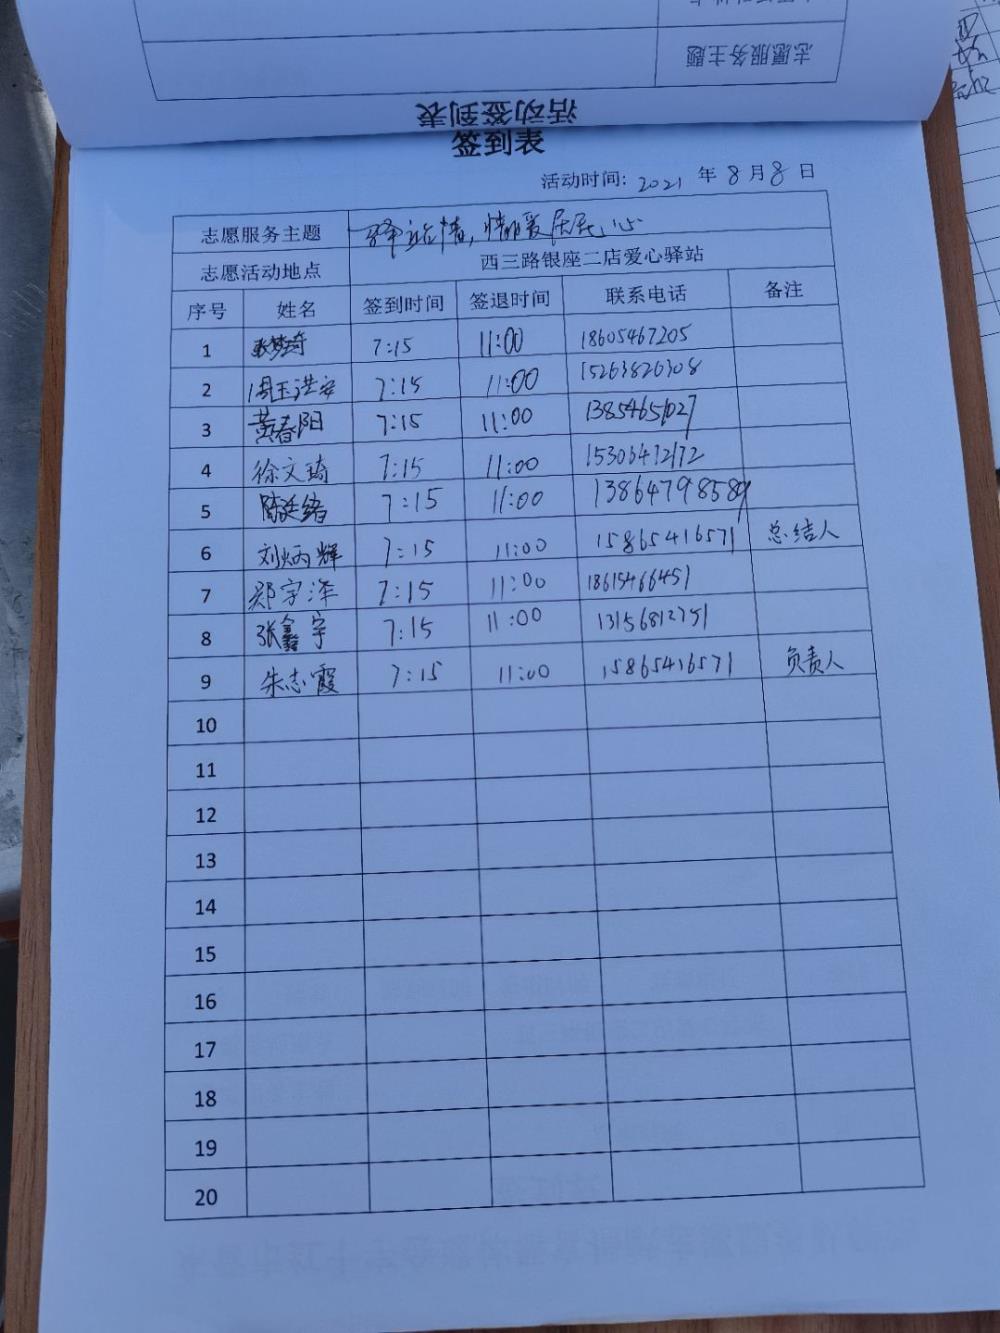 志愿服务主题
活动签到表
签到表
活动时间: 2021 年 8 月 8 日
志愿服务主题 驿站情,情暖居民心
志愿活动地点 西三路银座二店爱心驿站
序号 姓名 签到时间 签退时间 联系电话 备注
1 7:15 11:00 18605467205
2 周玉洪安 7:15 11:00 15263826308
3 黄春阳 7:15 11:00 13854651027
4 徐文琦 7:15 11:00 15306472172
5 陈廷绪 7:15 11:00 13864798589
6 刘炳辉 7:15 11:00 15865416571 总结人
7 郑宇泽 7:15 11:00 18615466451
8 张鑫宇 7:15 11:00 13156812751
9 朱志霞 7:15 11:00 15865416571 负责人
10
11
12
13
14
15
16
17
18
19
20